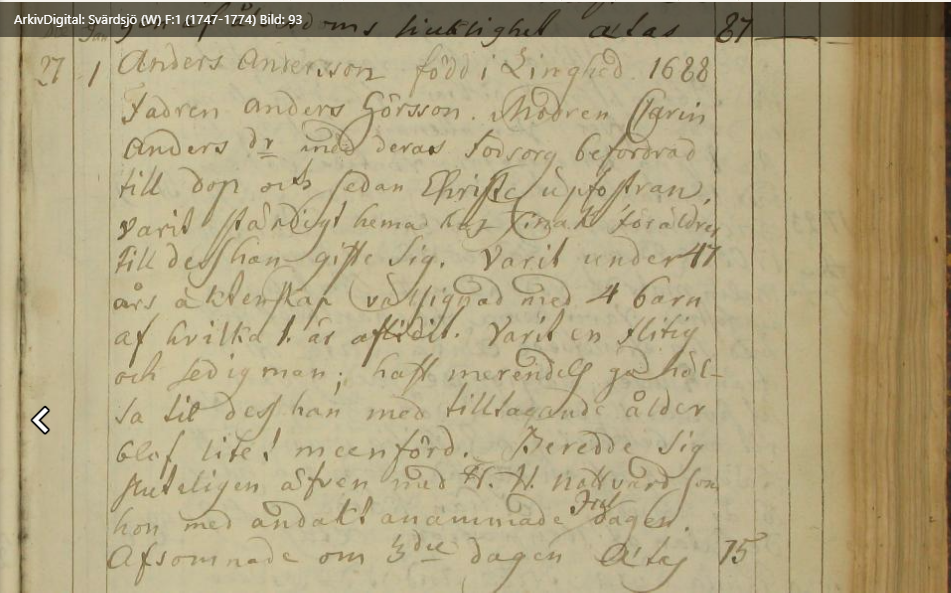 ArkivDigital: Svärdsjö (W) F:1 (1747-1774) Bild: 93
siuklighet ætas 87
27 1 Anders Andersson född i Linghed 1688
Fadren Anders Görsson. Modren Carin
Anders dr med deras fodsorg befordrad
till dop och sedan Christel: upfostran,
varit ständigt hema hos sina föräldrar
till dess han gifte sig. Varit under 47
års äktenskap välsignad med 4 barn
af hvilka 1. är aflidit. Varit en flitig
och sedig man; haft merendels god häl-
sa till dess han med tilltagande ålder
blef litet meenförd. Beredde sig
sluteligen äfven med H. H. nattvard som
hon med andakt anammade Jul dagen.
Afsomnade om 3die dagen Ætas 75